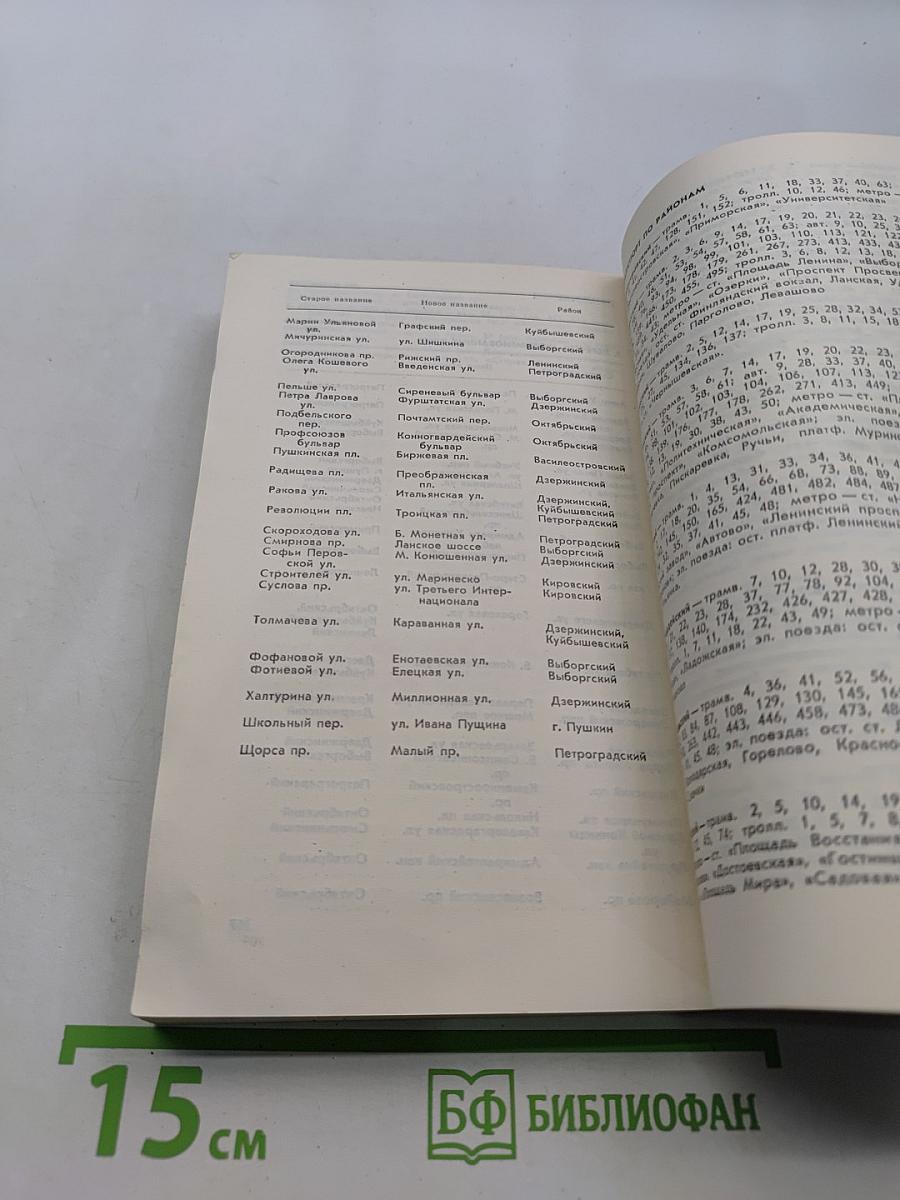 Старое название Новое название Район
Марии Ульяновой Графский пер. Куйбышевский
ул.
Мичуринская ул. ул. Шишкина Выборгский
Огородникова пр. Рижский пр. Ленинский
Олега Кошевого Введенская ул. Петроградский
ул.
Пельше ул. Сиреневый бульвар Выборгский
Петра Лаврова Фурштатская ул. Дзержинский
ул.
Подбельского Почтамтский пер. Октябрьский
пер.
Профсоюзов Конногвардейский Октябрьский
бульвар бульвар
Пушкинская пл. Биржевая пл. Василеостровский
Радищева пл. Преображенская Дзержинский
пл.
Ракова ул. Итальянская ул. Дзержинский,
Куйбышевский
Революции пл. Троицкая пл. Петроградский
Скороходова ул. Б. Монетная ул. Петроградский
Смирнова пр. Ланское шоссе Выборгский
Софьи Перов- М. Конюшенная ул. Дзержинский
ской ул.
Строителей ул. ул. Маринеско Кировский
Суслова пр. ул. Третьего Интер- Кировский
национала
Толмачева ул. Караванная ул. Дзержинский,
Куйбышевский
Фофановой ул. Енотаевская ул. Выборгский
Фотиевой ул. Елецкая ул. Выборгский
Халтурина ул. Миллионная ул. Дзержинский
Школьный пер. ул. Ивана Пущина г. Пушкин
Щорса пр. Малый пр. Петроградский
ПО РАЙОНАМ
трамв. 1, 5, 6, 11, 18, 33, 37, 40, 63;
47, 128, 151, 152; тролл. 10, 12, 46; метро —
«Приморская», «Университетская»
трамв. 2, 3, 6, 9, 14, 17, 19, 20, 21, 22, 23,
53, 54, 57, 58, 61, 63; авт. 9, 10, 25,
94, 98, 99, 101, 103, 110, 113, 121,
178, 179, 261, 267, 273, 413, 433,
455, 495; тролл. 3, 6, 8, 12, 13, 18,
метро — ст. «Площадь Ленина», «Выбор
«Удельная», «Озерки», «Проспект Просве
ост. ст. Финляндский вокзал, Ланская, Уд
Шувалово, Парголово, Левашово
трамв. 2, 5, 12, 14, 17, 19, 25, 28, 32, 34,
45, 134, 136, 137; тролл. 3, 8, 11, 15, 18
«Чернышевская».
трамв. 3, 6, 7, 14, 17, 19, 20, 22, 23,
53, 57, 58, 61; авт. 9, 28, 33, 37, 40,
101, 102, 103, 104, 106, 107, 113,
176, 177, 178, 262, 271, 413, 449;
13, 19, 30, 38, 43, 50; метро — ст. «П
«Политехническая», «Академическая»,
проспект», «Комсомольская»; эл. поез
Пискаревка, Ручьи, платф. Мурин
трамв. 1, 4, 13, 31, 33, 34, 36, 41,
17, 18, 20, 35, 54, 66, 68, 73, 88, 89,
145, 150, 165, 424, 481, 482, 484, 487
32, 35, 37, 41, 45, 48; метро — ст. «Н
завод», «Автово», «Ленинский просп
эл. поезда: ост. платф. Ленинский
трамв. 7, 10, 12, 28, 30,
22, 23, 28, 37, 77, 78, 92, 104,
138, 140, 174, 232, 426, 427, 428,
1, 7, 11, 18, 22, 43, 49; метро —
«Ладожская»; эл. поезда: ост.
трамв. 4, 36, 41, 52, 56,
84, 87, 108, 129, 130, 145,
442, 443, 446, 458, 473,
45, 48; эл. поезда: ост. ст.
Горелово, Красно
трамв. 2, 5, 10, 14, 19
45, 74; тролл. 1, 5, 7, 8,
ст. «Площадь Восстания
«Достоевская», «Гостин
«Площадь Мира», «Садовая»
15 см
БФ БИБЛИОФАН